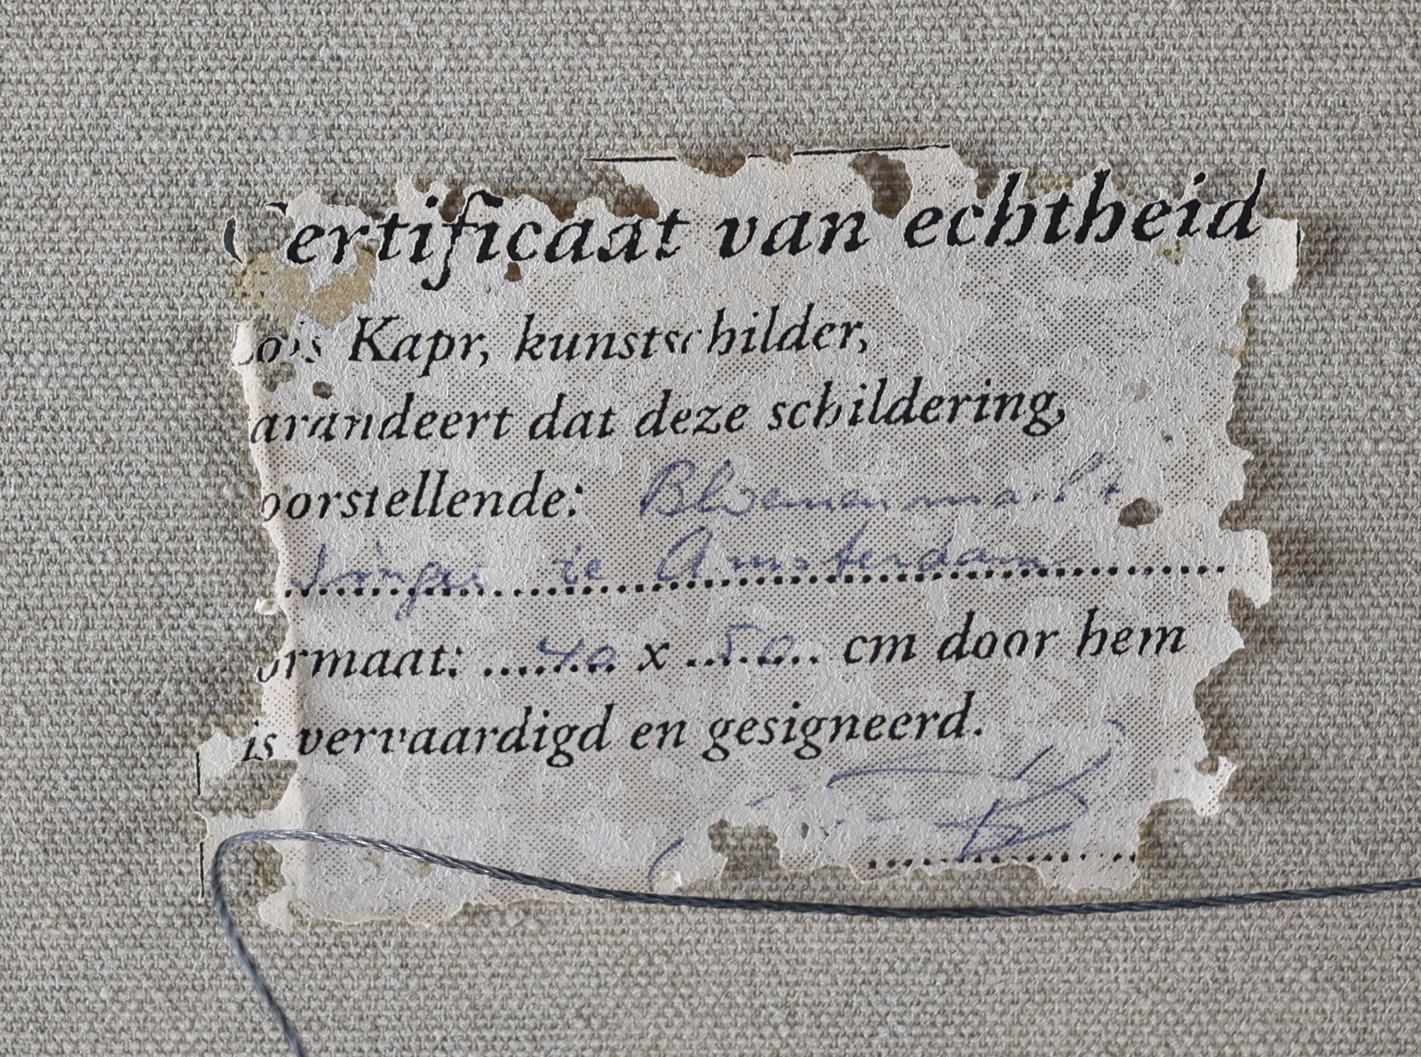 Certificaat van echtheid
ois Kapr, kunstschilder,
arandeert dat deze schildering,
oorstellende: Bloemenmarkt
Singel te Amsterdam
ormaat: 40 x 50 cm door hem
is vervaardigd en gesigneerd.